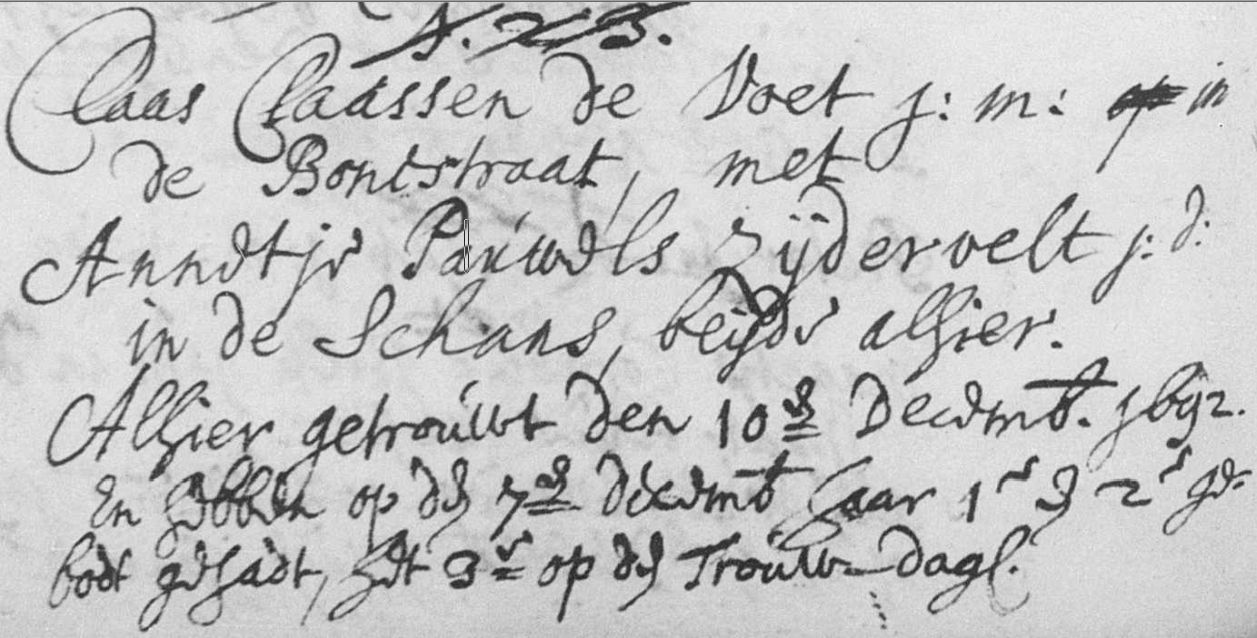 Claas Claassen de Voet j: m: in
de Bontstraat, met
Annetje Pauwels Zijdervelt j: d:
in de Schans, beijde alhier.
Alhier getrouwt den 10e Decemb. 1692.
En hebben op den 7e decemb haar 1e en 2e ge-
bodt gehadt, het 3e op den Trouw-dagh.